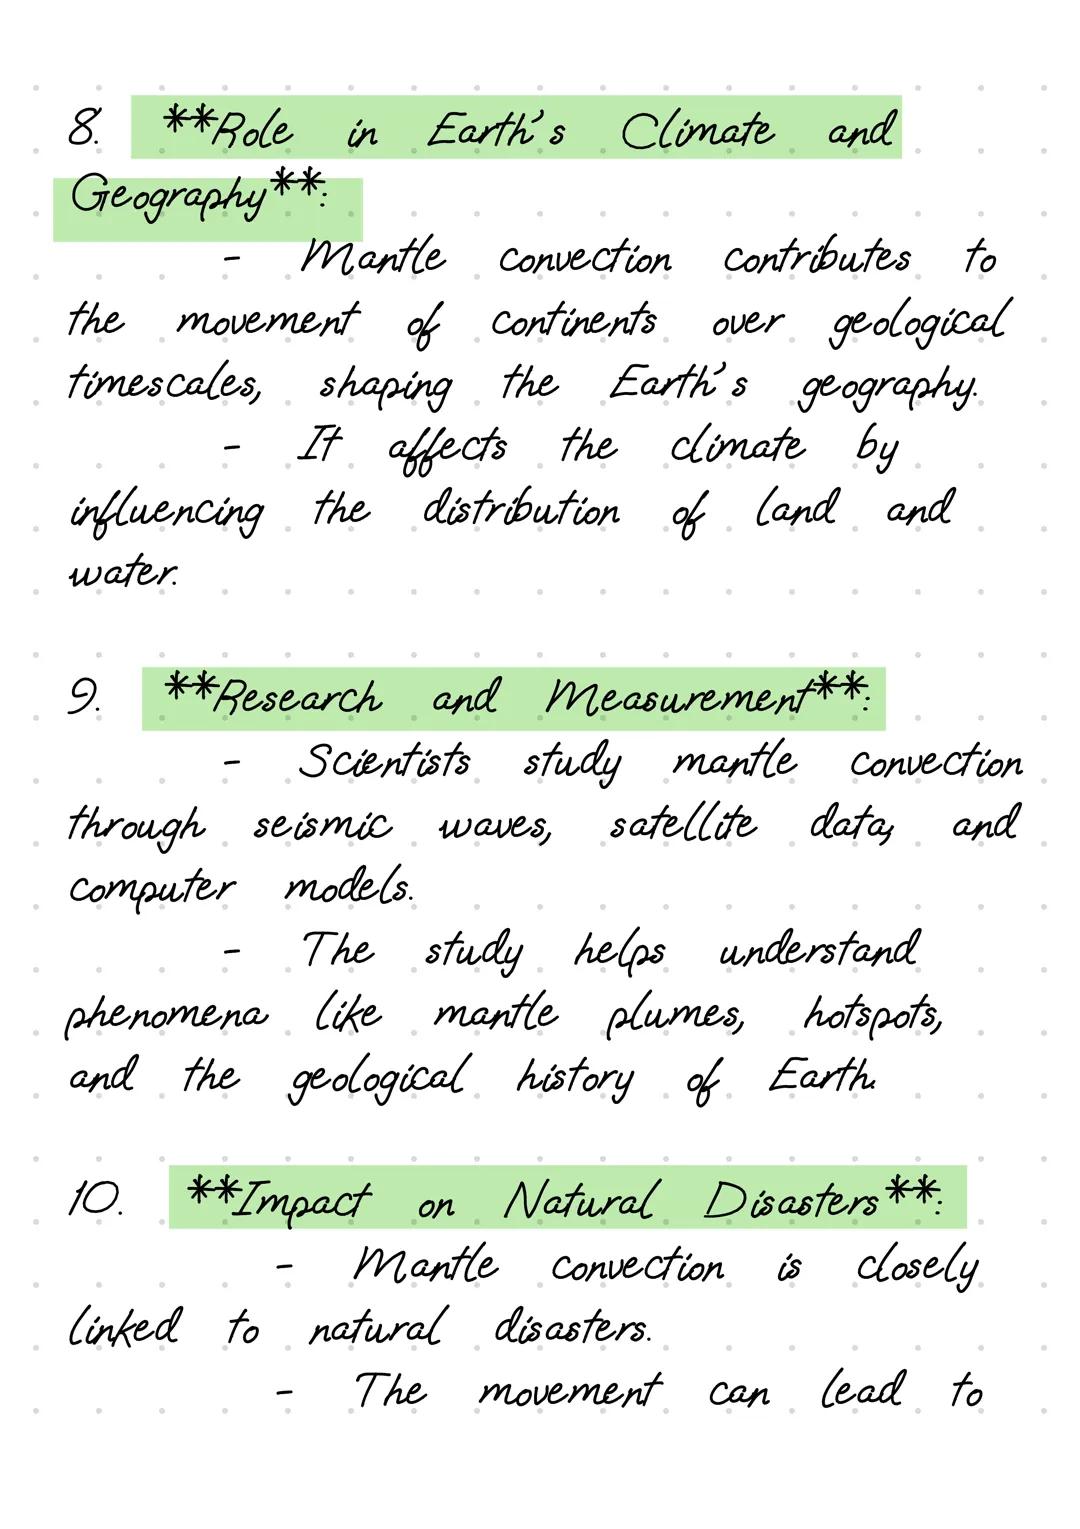 8. **Role in Earth's Climate and
Geography**:
- Mantle convection contributes to
the movement of continents over geological
timescales, shaping the Earth's geography.
- It affects the climate by
influencing the distribution of land and
water.
9. **Research and Measurement**:
- Scientists study mantle convection
through seismic waves, satellite data, and
computer models.
- The study helps understand
phenomena like mantle plumes, hotspots,
and the geological history of Earth.
10. **Impact on Natural Disasters**:
- Mantle convection is closely
linked to natural disasters.
- The movement can lead to